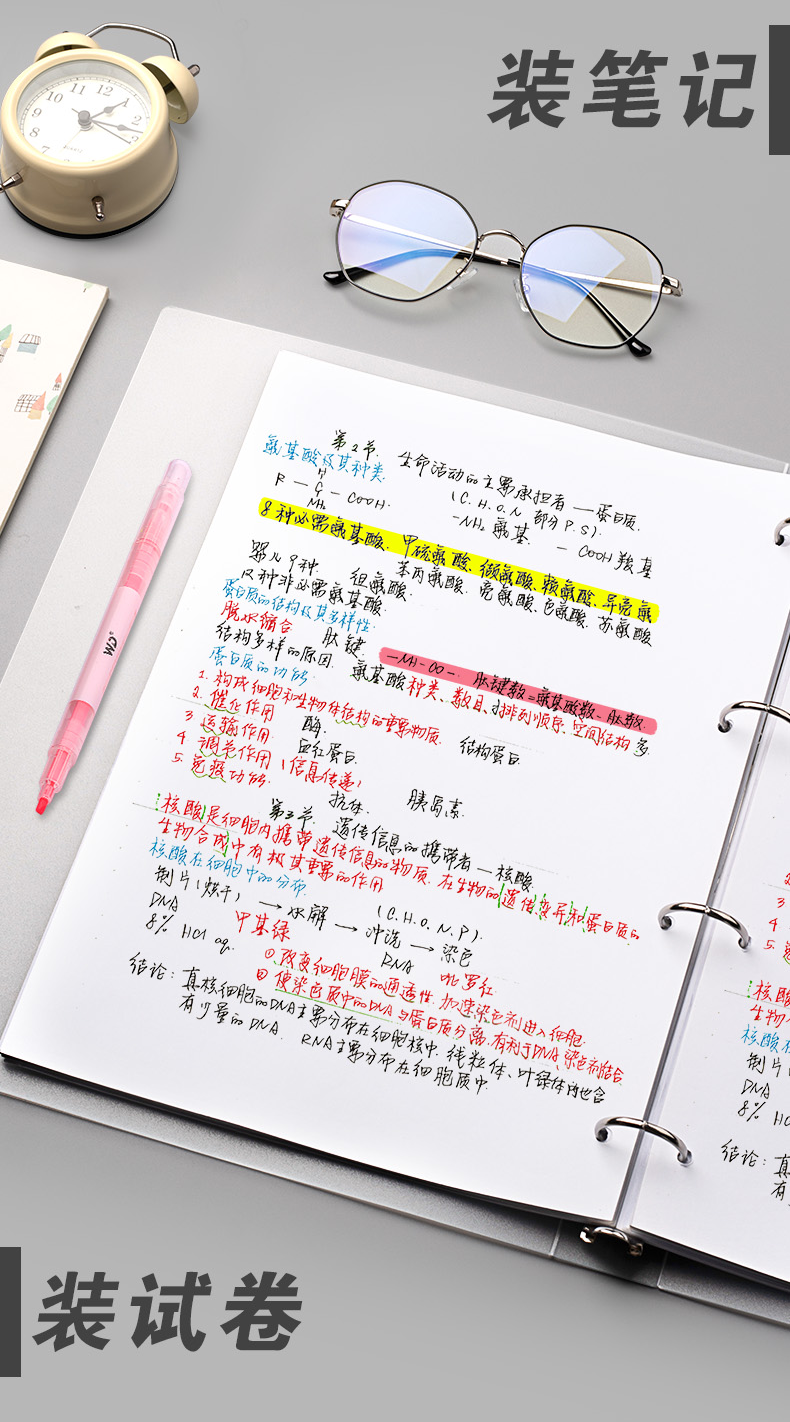 装笔记
12
11
10
9
8
7
6
5
4
3
2
1
第2节. 生命活动的主要承担者—蛋白质.
氨基酸及其种类.
(C.H.O.N 部分P.S).
H
R — C — COOH.
NH₂
-NH₂ 氨基. - COOH 羧基
8种必需氨基酸. 甲硫氨酸、缬氨酸、赖氨酸、异亮氨
苯丙氨酸. 亮氨酸、色氨酸、苏氨酸
婴儿9种. 组氨酸.
12种非必需氨基酸
蛋白质的结构及其多样性.
脱水缩合 肽键. —NH-CO-. 肽键数=氨基酸数-肽数.
结构多样的原因. 氨基酸种类、数目、排列顺序、空间结构多
蛋白质的功能.
1. 构成细胞和生物体结构的重要物质. 结构蛋白
2. 催化作用 酶.
3 运输作用. 血红蛋白.
4 调节作用(信息传递) 胰岛素.
5. 免疫功能. 抗体.
第3节. 遗传信息的携带者—核酸
核酸是细胞内携带遗传信息的物质. 在生物的遗传变异和蛋白质的
生物合成中有极其重要的作用
核酸在细胞中的分布. (C.H.O.N.P).
制片(烘干) → 水解 → 冲洗 → 染色
DNA 甲基绿 RNA 吡罗红
8% HCl aq. ① 改变细胞膜的通透性. 加速染色剂进入细胞.
② 使染色质中的DNA与蛋白质分离. 有利于DNA、染色剂结合.
结论: 真核细胞的DNA主要分布在细胞核中. 线粒体、叶绿体内也含
有少量的DNA. RNA主要分布在细胞质中.
核酸
生物
核酸在
制片
DNA
8% HC
结论: 真
有
装试卷